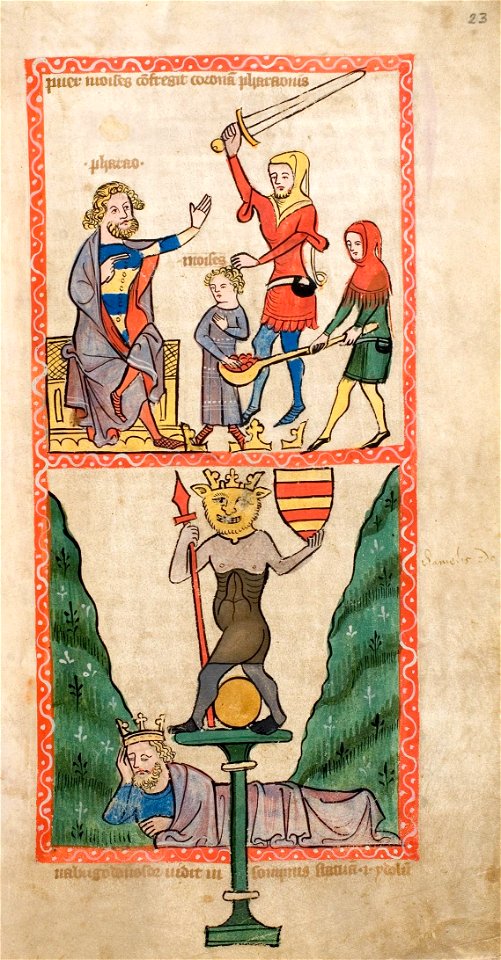 23
puer moises cōfregit coronā pharaonis
·pharao·
moises
nabugodonosor uidit in sompnis statuā ·i· ydolū